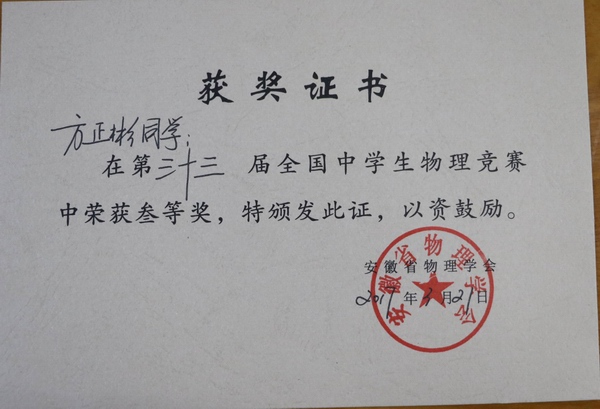 获奖证书
方正彬同学：
在第三十三届全国中学生物理竞赛
中荣获叁等奖，特颁发此证，以资鼓励。
安徽省物理学会
安徽省物理学会
2017年3月21日